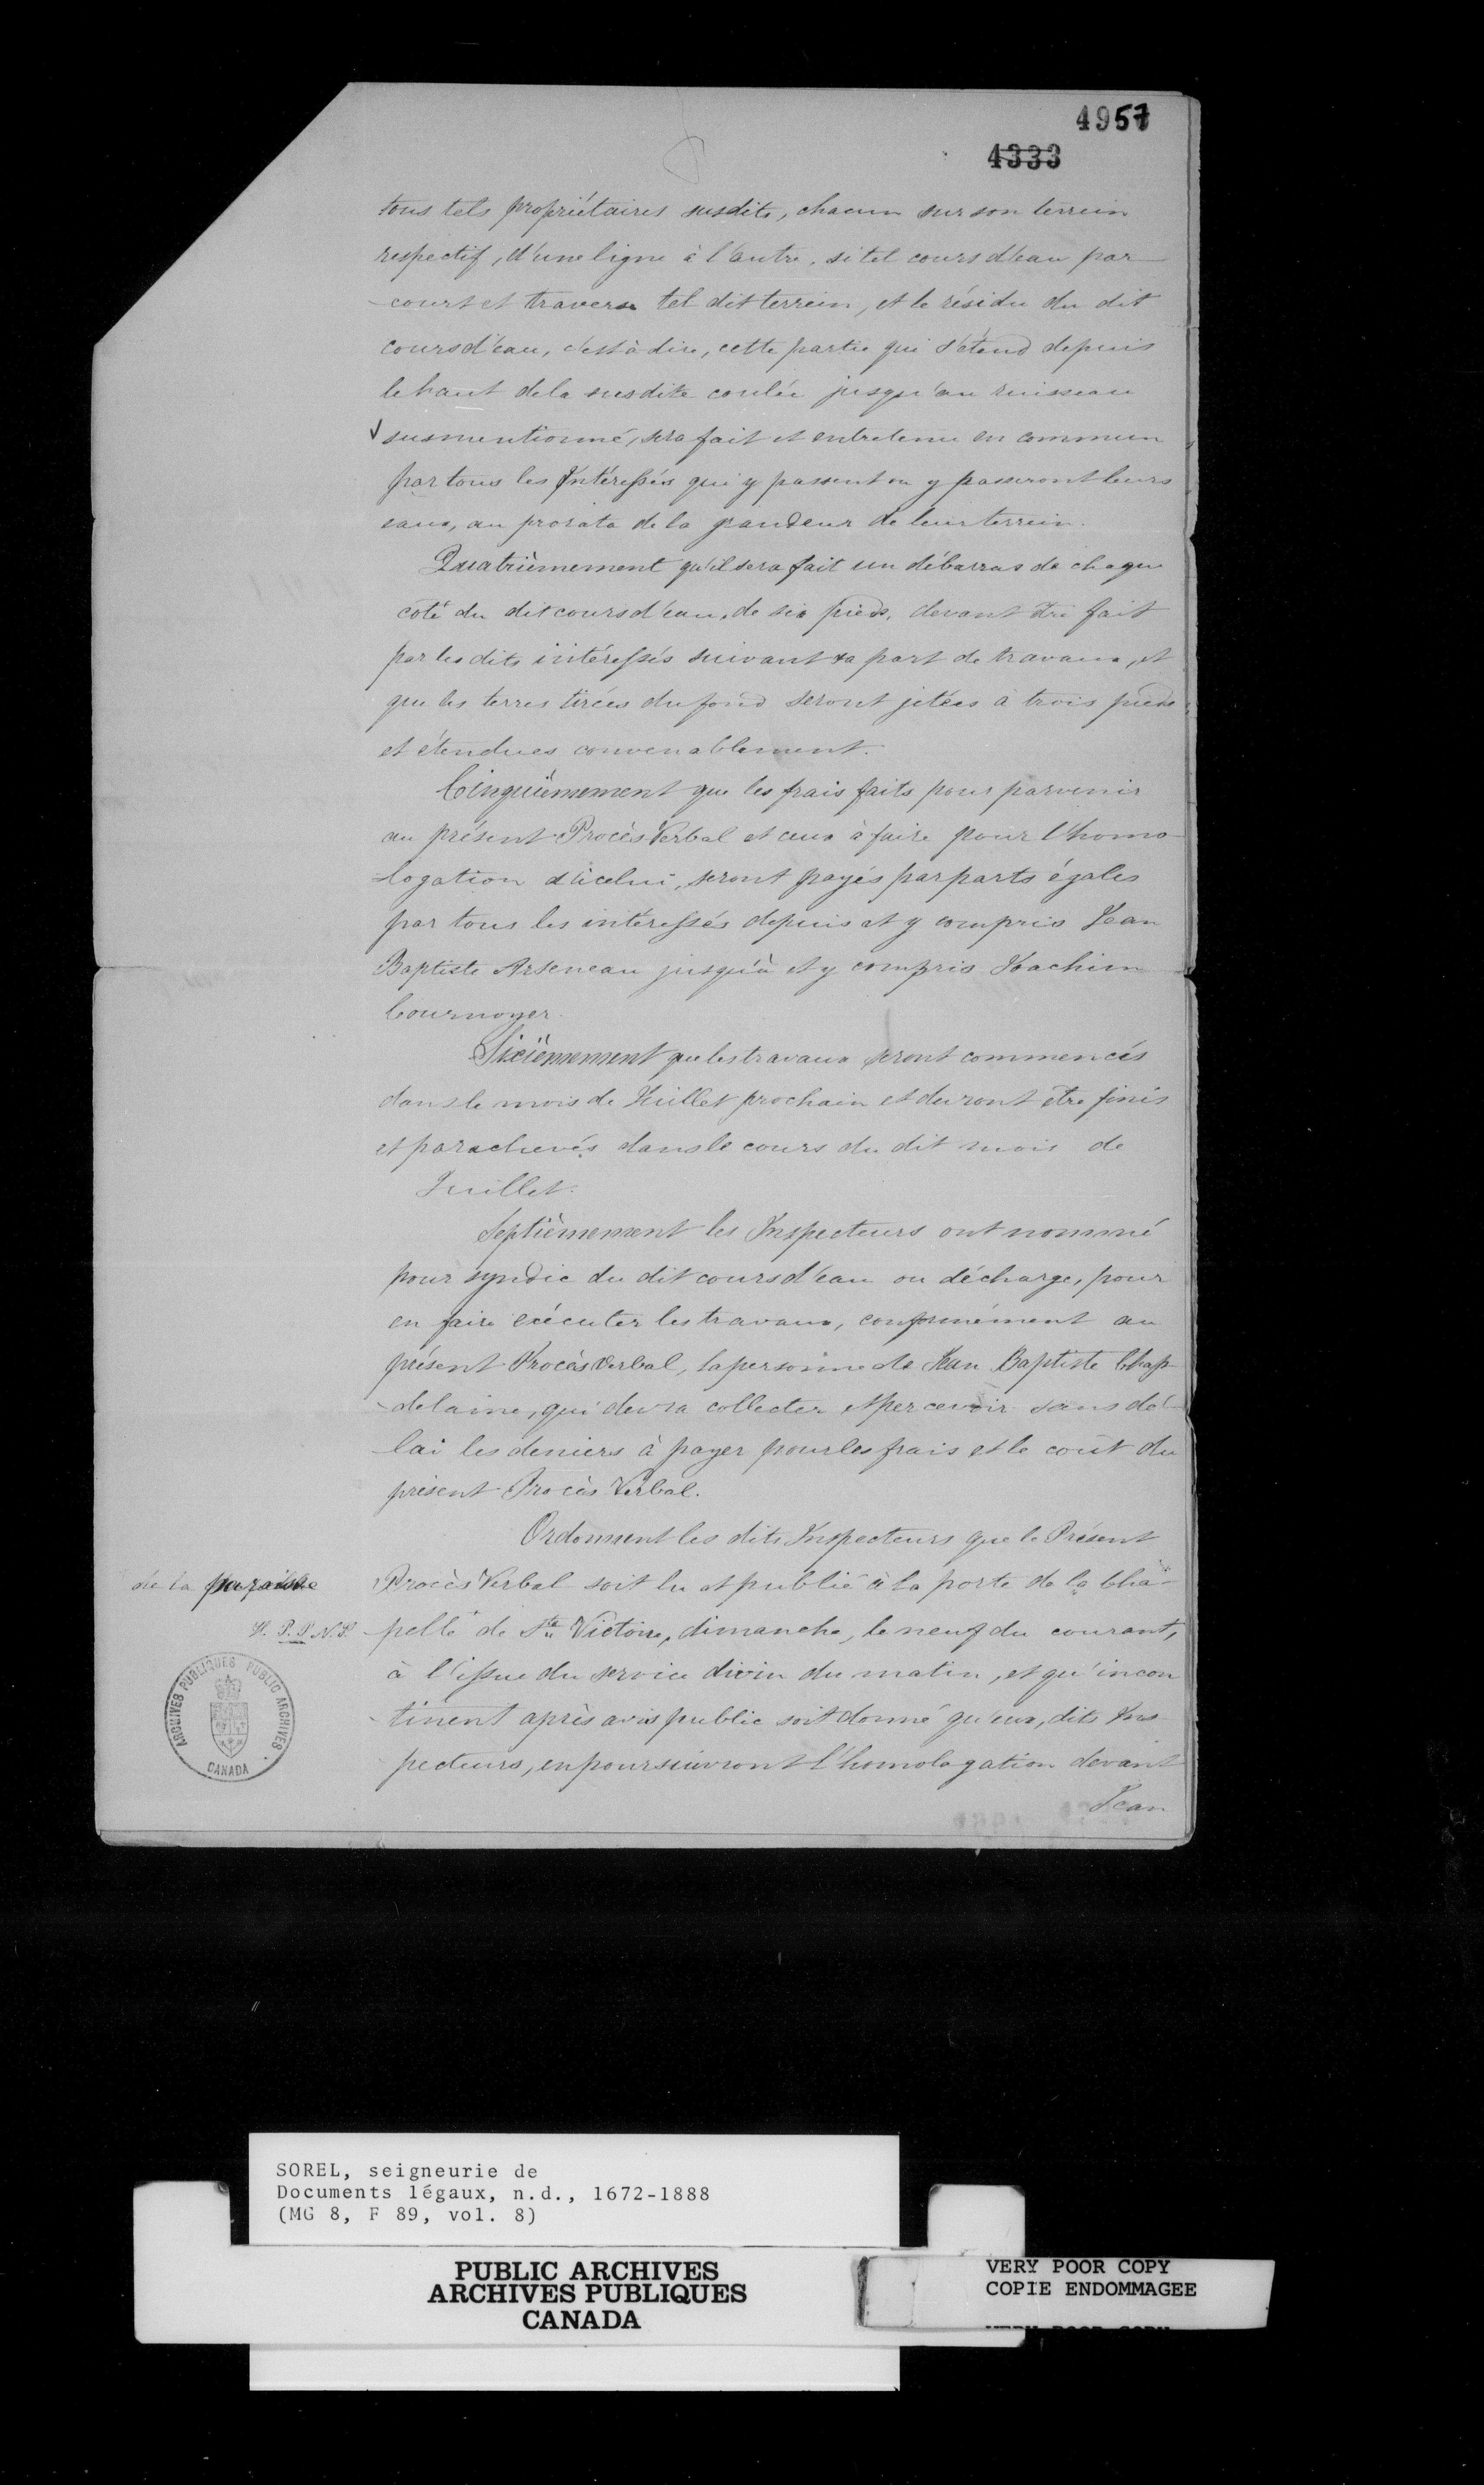 4957
4333
tous tels propriétaires susdits, chacun sur son terrein
respectif, d'une ligne à l'autre, si tel cours d'eau par-
-court et traverse tel dit terrein, et le résidu du dit
cours d'eau, c'est à dire, cette partie qui s'étend depuis
le haut de la susdite coulée jusqu'au ruisseau
susmentionné, sera fait et entretenu en commun
par tous les Intéressés qui y passent ou y passeront leurs
eaux, au prorata de la grandeur de leur terrein.
Quatrièmement qu'il sera fait un débarras de chaque
coté du dit cours d'eau, de six pieds, devant être fait
par les dits intéressés suivant sa part de travaux, et
que les terres tirées du fond seront jetées à trois pieds
et étendues convenablement.
Cinquièmement que les frais faits pour parvenir
au présent Procès Verbal et ceux à faire pour l'homo-
-logation d'icelui, seront payés par parts égales
par tous les intéressés depuis et y compris Jean
Baptiste Arseneau jusqu'à et y compris Joachim
Cournoyer.
Sixièmement que les travaux seront commencés
dans le mois de Juillet prochain et devront être finis
et parachevés dans le cours du dit mois de
Juillet.
Septièmement les Inspecteurs ont nommé
pour syndic du dit cours d'eau ou décharge, pour
en faire exécuter les travaux, conformément au
présent Procès Verbal, la personne de Jean Baptiste Chap-
-delaine, qui devra collecter et percevoir sans dé-
-lai les deniers à payer pour les frais et le coût du
présent Procès Verbal.
Ordonnent les dits Inspecteurs que le Présent
de la paroisse
Procès Verbal soit lu et publié à la porte de la Cha-
P. N. P.
-pelle de Ste Victoire, dimanche, le neuf du courant,
à l'issue du service divin du matin, et qu'incon
-tinent après avis public soit donné qu'eux, dits Ins-
pecteurs, en poursuivront l'homologation devant
Jean
ARCHIVES PUBLIQUES PUBLIC ARCHIVES
CANADA
SOREL, seigneurie de
Documents légaux, n.d., 1672-1888
(MG 8, F 89, vol. 8)
PUBLIC ARCHIVES
ARCHIVES PUBLIQUES
CANADA
VERY POOR COPY
COPIE ENDOMMAGEE
VERY POOR COPY